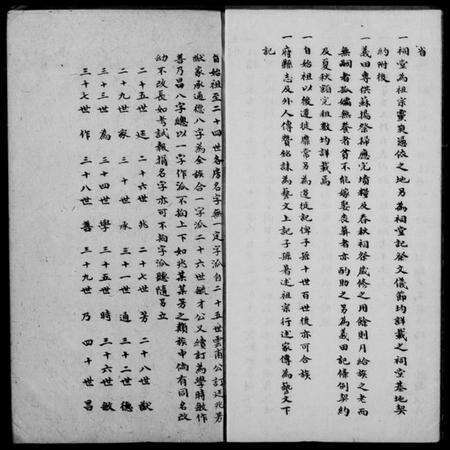 省
一祠堂為祖宗靈爽憑依之地另為祠堂記祭文儀節均詳載之祠堂基地契
約附後
一義田專供蘇撝祭掃應完墳糧及春秋祠祭歲修之用餘則月給族之老而
無嗣者孤孀無養者苦不能嫁娶喪葬者亦酌助之另為義田記條例契約
及夏秋額完租數均詳載焉
一自始祖以後遷徙靡常另為遷徙記俾子孫十世百世後亦可合族
一府縣志及外人傳贊銘誄為藝文上記子孫著述祖宗行述家傳為藝文下
記
自始祖至二十四世各房名字無一定字派自二十五世雲甫公訂廷兆芳
猷家承通德八字為全族合一字派二十六世敏才公又續訂為學時敏作
善乃昌八字總以一字作派不拘上下如兆某某芳之類族中倘有同名改
幼不改長如考試報捐名字亦可不拘字派聽隨另立
二十五世 廷 二十六世 兆 二十七世 芳 二十八世 猷
二十九世 家 三十世 承 三十一世 通 三十二世 德
三十三世 為 三十四世 學 三十五世 時 三十六世 敏
三十七世 作 三十八世 善 三十九世 乃 四十世 昌